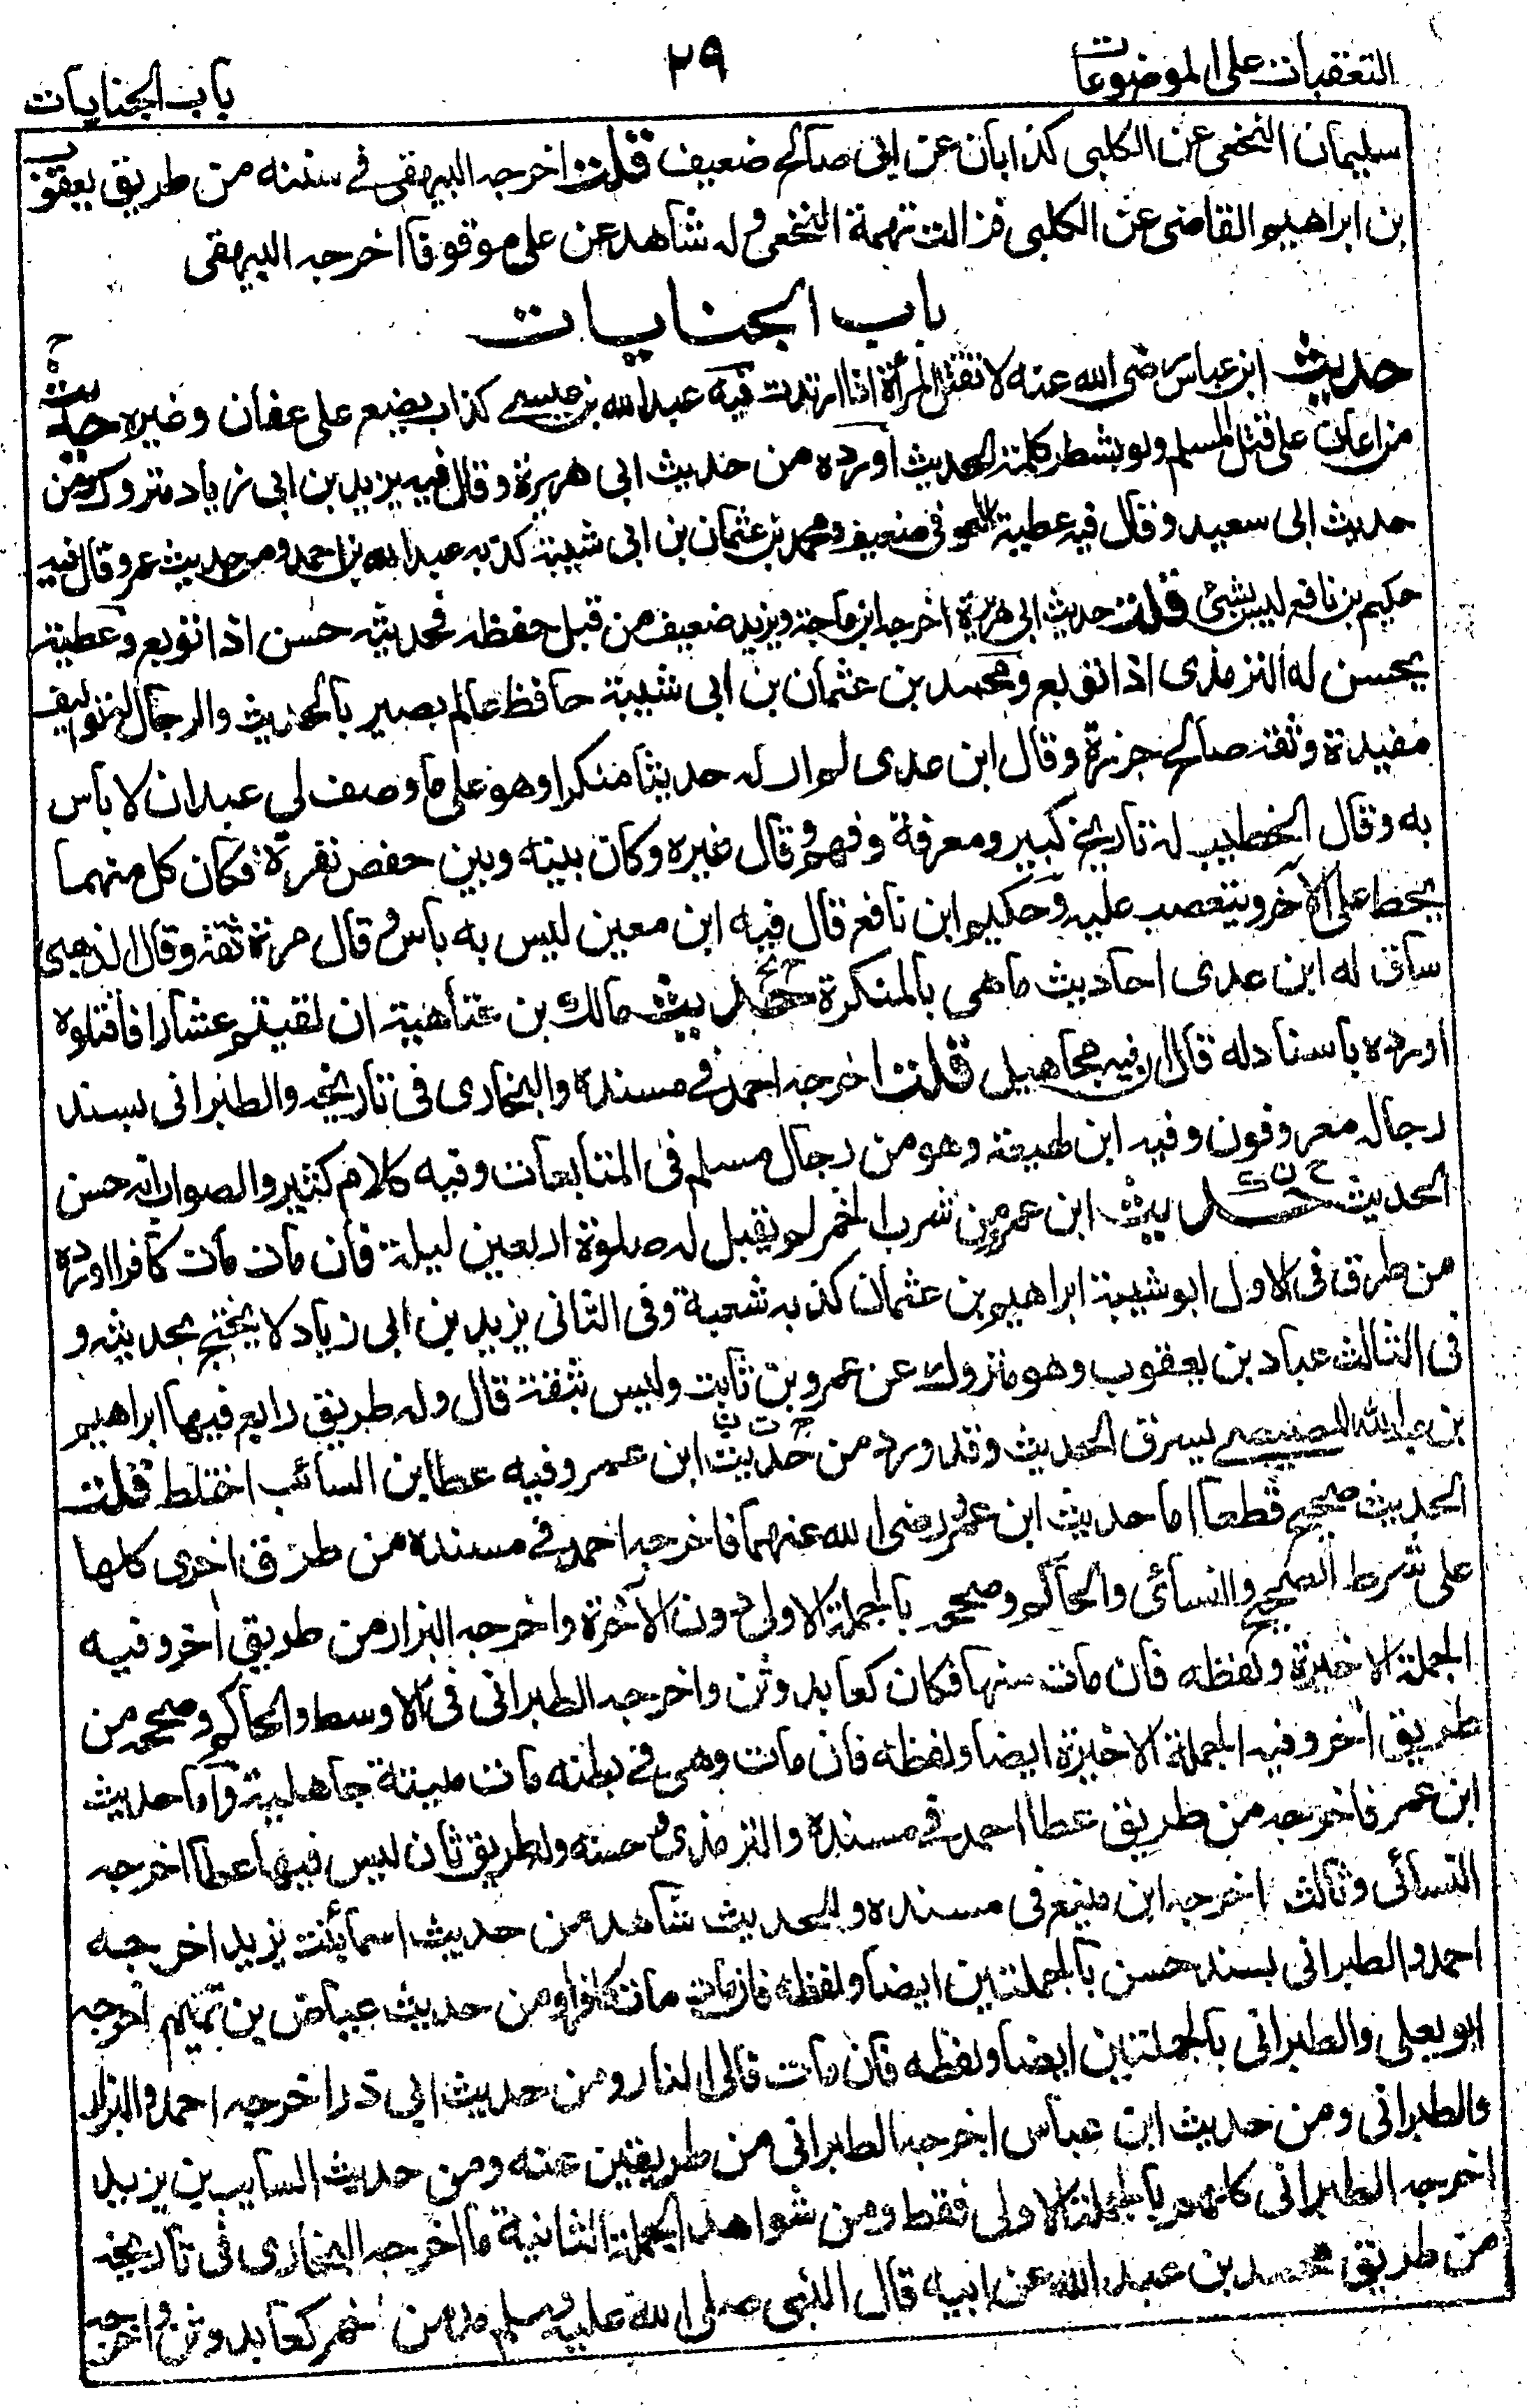 التعقبات على الموضوعات
٢٩
باب الجنايات
سليمان النخعى عن الكلبى كذابان عن ابى صالح ضعيف قلت اخرجه البيهقى فے سننه من طريق يعقوب
بن ابراهيم القاضى عن الكلبى فزالت تهمة النخعى وله شاهد عن على موقوفا اخرجه البيهقى
باب الجنايات
حديث ابن عباس رضى الله عنه لا تقتل المرأة اذا ارتدت فيه عبد الله بن عيسے كذاب يضع على عفان وغيره حديث
من اعان على قتل المسلم ولو بشطر كلمة الحديث اورده من حديث ابى هريرة وقال فيه يزيد بن ابى زياد متروك ومن
حديث ابى سعيد وقال فيه عطية العوفى ضعيف ومحمد بن عثمان بن ابى شيبة كذبه عبد الله بن احمد ومن حديث عمر وقال فيه
حكيم بن نافع ليس بشئ قلت حديث ابى هريرة اخرجه ابن ماجة ويزيد ضعيف من قبل حفظه فحديثه حسن اذا توبع وعطية
يحسن له الترمذى اذا توبع ومحمد بن عثمان بن ابى شيبة حافظ عالم بصير بالحديث والرجال له تواليف
مفيدة وثقه صالح جزرة وقال ابن عدى لم ار له حديثا منكرا وهو على ما وصف لى عبدان لا باس
به وقال الخطيب له تاريخ كبير ومعرفة وفهم وقال غيره وكان بينه وبين حفص نقرة فكان كل منهما
يحط على الآخر ويتعصب عليه وحكيم ابن نافع قال فيه ابن معين ليس به باس وقال مرة ثقة وقال الذهبى
ساق له ابن عدى احاديث ماهى بالمنكرة حديث مالك بن عتاهية ان لقيتم عشارا فاقتلوه
اورده باسناد له قال فيه مجاهيل قلت اخرجه احمد فے مسنده والبخارى فى تاريخه والطبرانى بسند
رجاله معروفون وفيه ابن لهيعة وهو من رجال مسلم فى المتابعات وفيه كلام كثير والصواب انه حسن
الحديث حديث ابن عمر من شرب الخمر لم يقبل له صلوة اربعين ليلة فان مات مات كافرا اورده
من طرق فى الاول ابو شيبة ابراهيم بن عثمان كذبه شعبة وفى الثانى يزيد بن ابى زياد لا يحتج بحديثه و
فى الثالث عباد بن يعقوب وهو متروك عن عمرو بن ثابت وليس بثقة قال وله طريق رابع فيها ابراهيم
بن عبد الله المصيصے يسرق الحديث وقد ورد من حديث ابن عمرو فيه عطا بن السائب اختلط قلت
الحديث صحيح قطعا اما حديث ابن عمر رضى الله عنهما فاخرجه احمد فے مسنده من طرق اخرى كلها
على شرط الصحيح والنسائى والحاكم وصححه بالجملة الاولى دون الآخرة واخرجه البزار من طريق اخر وفيه
الجملة الاخيرة ولفظه فان مات منها فكان كعابد وثن واخرجه الطبرانى فى الاوسط والحاكم وصححه من
طريق اخر وفيه الجملة الاخيرة ايضا ولفظه فان مات وهى فے بطنه مات ميتة جاهلية واما حديث
ابن عمر فاخرجه من طريق عطا احمد فے مسنده والترمذى وحسنه وله طريق ثان ليس فيها عطا اخرجه
النسائى وثالث اخرجه ابن منيع فى مسنده وللحديث شاهد من حديث اسماء بنت يزيد اخرجه
احمد والطبرانى بسند حسن بالجملتين ايضا ولفظه فان مات مات كافرا ومن حديث عياض بن غنيم اخرجه
ابو يعلى والطبرانى بالجملتين ايضا ولفظه فان مات فالى النار ومن حديث ابى ذر اخرجه احمد والبزار
والطبرانى ومن حديث ابن عباس اخرجه الطبرانى من طريقين عنه ومن حديث السايب بن يزيد
اخرجه الطبرانى كلهم بالجملة الاولى فقط ومن شواهد الجملة الثانية ما اخرجه البخارى فى تاريخه
من طريق محمد بن عبد الله عن ابيه قال النبى صلى الله عليه وسلم مدمن خمر كعابد وثن واخرجه